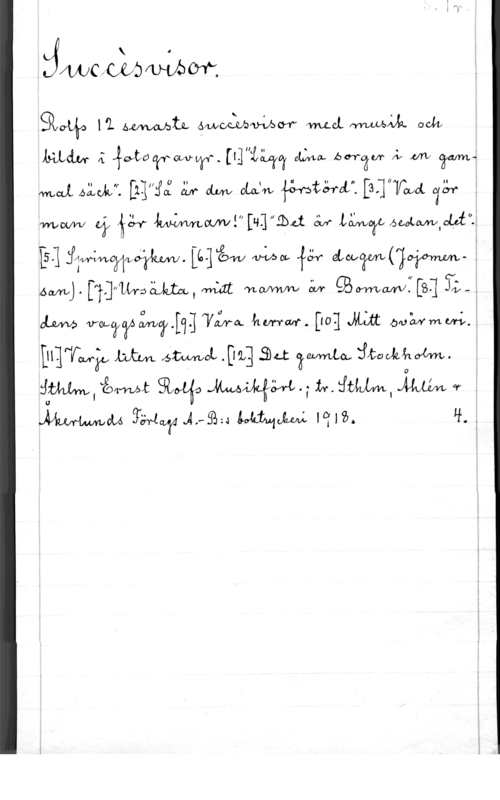 Succèsvisor.
Rolfs 12 senaste succèsvisor med musik och
bilder i fotogravyr. [1] "Lägg dina sorger i en gam-
mal säck". [2] "Så är den da'n förstörd". [3.] "Vad gör
man ej för kvinnan!" [4.] "Det är länge sedan, det".
[5.] Springpojken. [6.] En visa för dagen (Jojomen-
san). [7.] "Ursäkta, mitt namn är Boman". [8.] Ti-
dens vaggsång. [9.] Våra herrar. [10.] Mitt svärmeri.
[11] Varje liten stund. [12.] Det gamla Stockholm.
Sthlm, Ernst Rolfs Musikförl.; tr. Sthlm, Åhlén &
Åkerlunds Förlags A.-B:s boktryckeri 1918. 4.